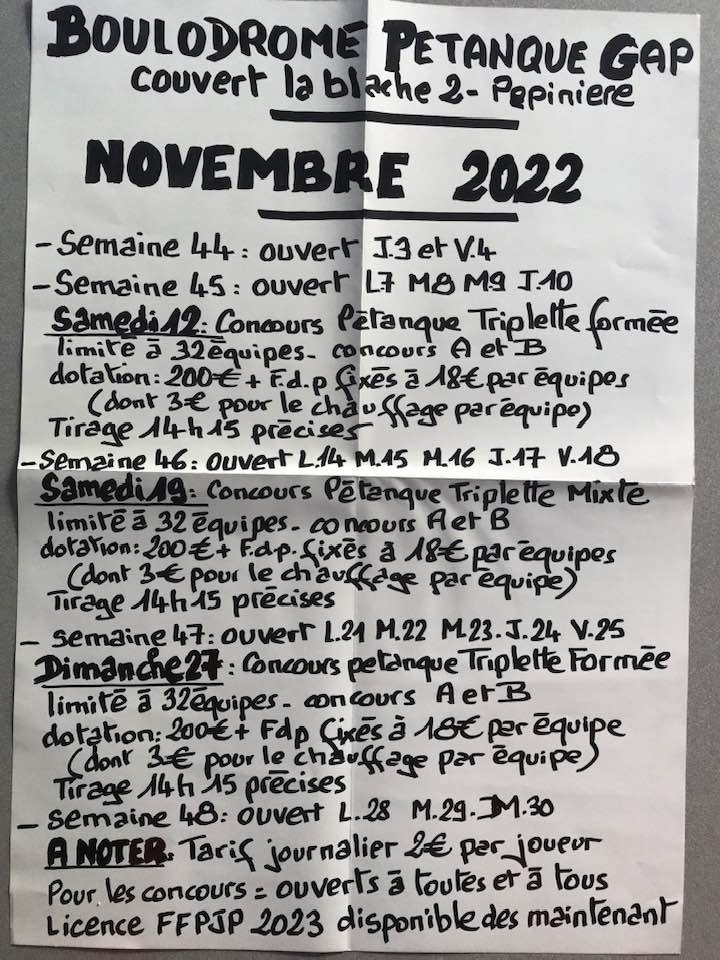 BOULODROME PETANQUE GAP
couvert la blache 2 - Pepiniere
NOVEMBRE 2022
- Semaine 44 : ouvert J.3 et V.4
- Semaine 45 : ouvert L7 M8 M9 J.10
Samedi 12 : Concours Pētanque Triplette formēe
limitē ā 32 ēquipes - concours A et B
dotation : 200€ + F.d.p fixēs à 18€ par ēquipes
(dont 3€ pour le chauffage par ēquipe)
Tirage 14h15 prēcises
- Semaine 46 : ouvert L.14 M.15 M.16 J.17 V.18
Samedi 19 : Concours Pētanque Triplette Mixte
limitē ā 32 ēquipes - concours A et B
dotation : 200€ + F.d.p. fixēs à 18€ par ēquipes
(dont 3€ pour le chauffage par ēquipe)
Tirage 14h15 prēcises
- Semaine 47 : ouvert L.21 M.22 M.23. J.24 V.25
Dimanche 27 : Concours petanque Triplette Formēe
limitē ā 32 ēquipes - concours A et B
dotation : 200€ + Fdp fixēs à 18€ par ēquipe
(dont 3€ pour le chauffage par ēquipe)
Tirage 14h15 prēcises
- Semaine 48 : ouvert L.28 M.29. M.30
A NOTER. Tarif journalier 2€ par joueur
Pour les concours = ouverts ā toutes et ā tous
Licence FFPJP 2023 disponible des maintenant